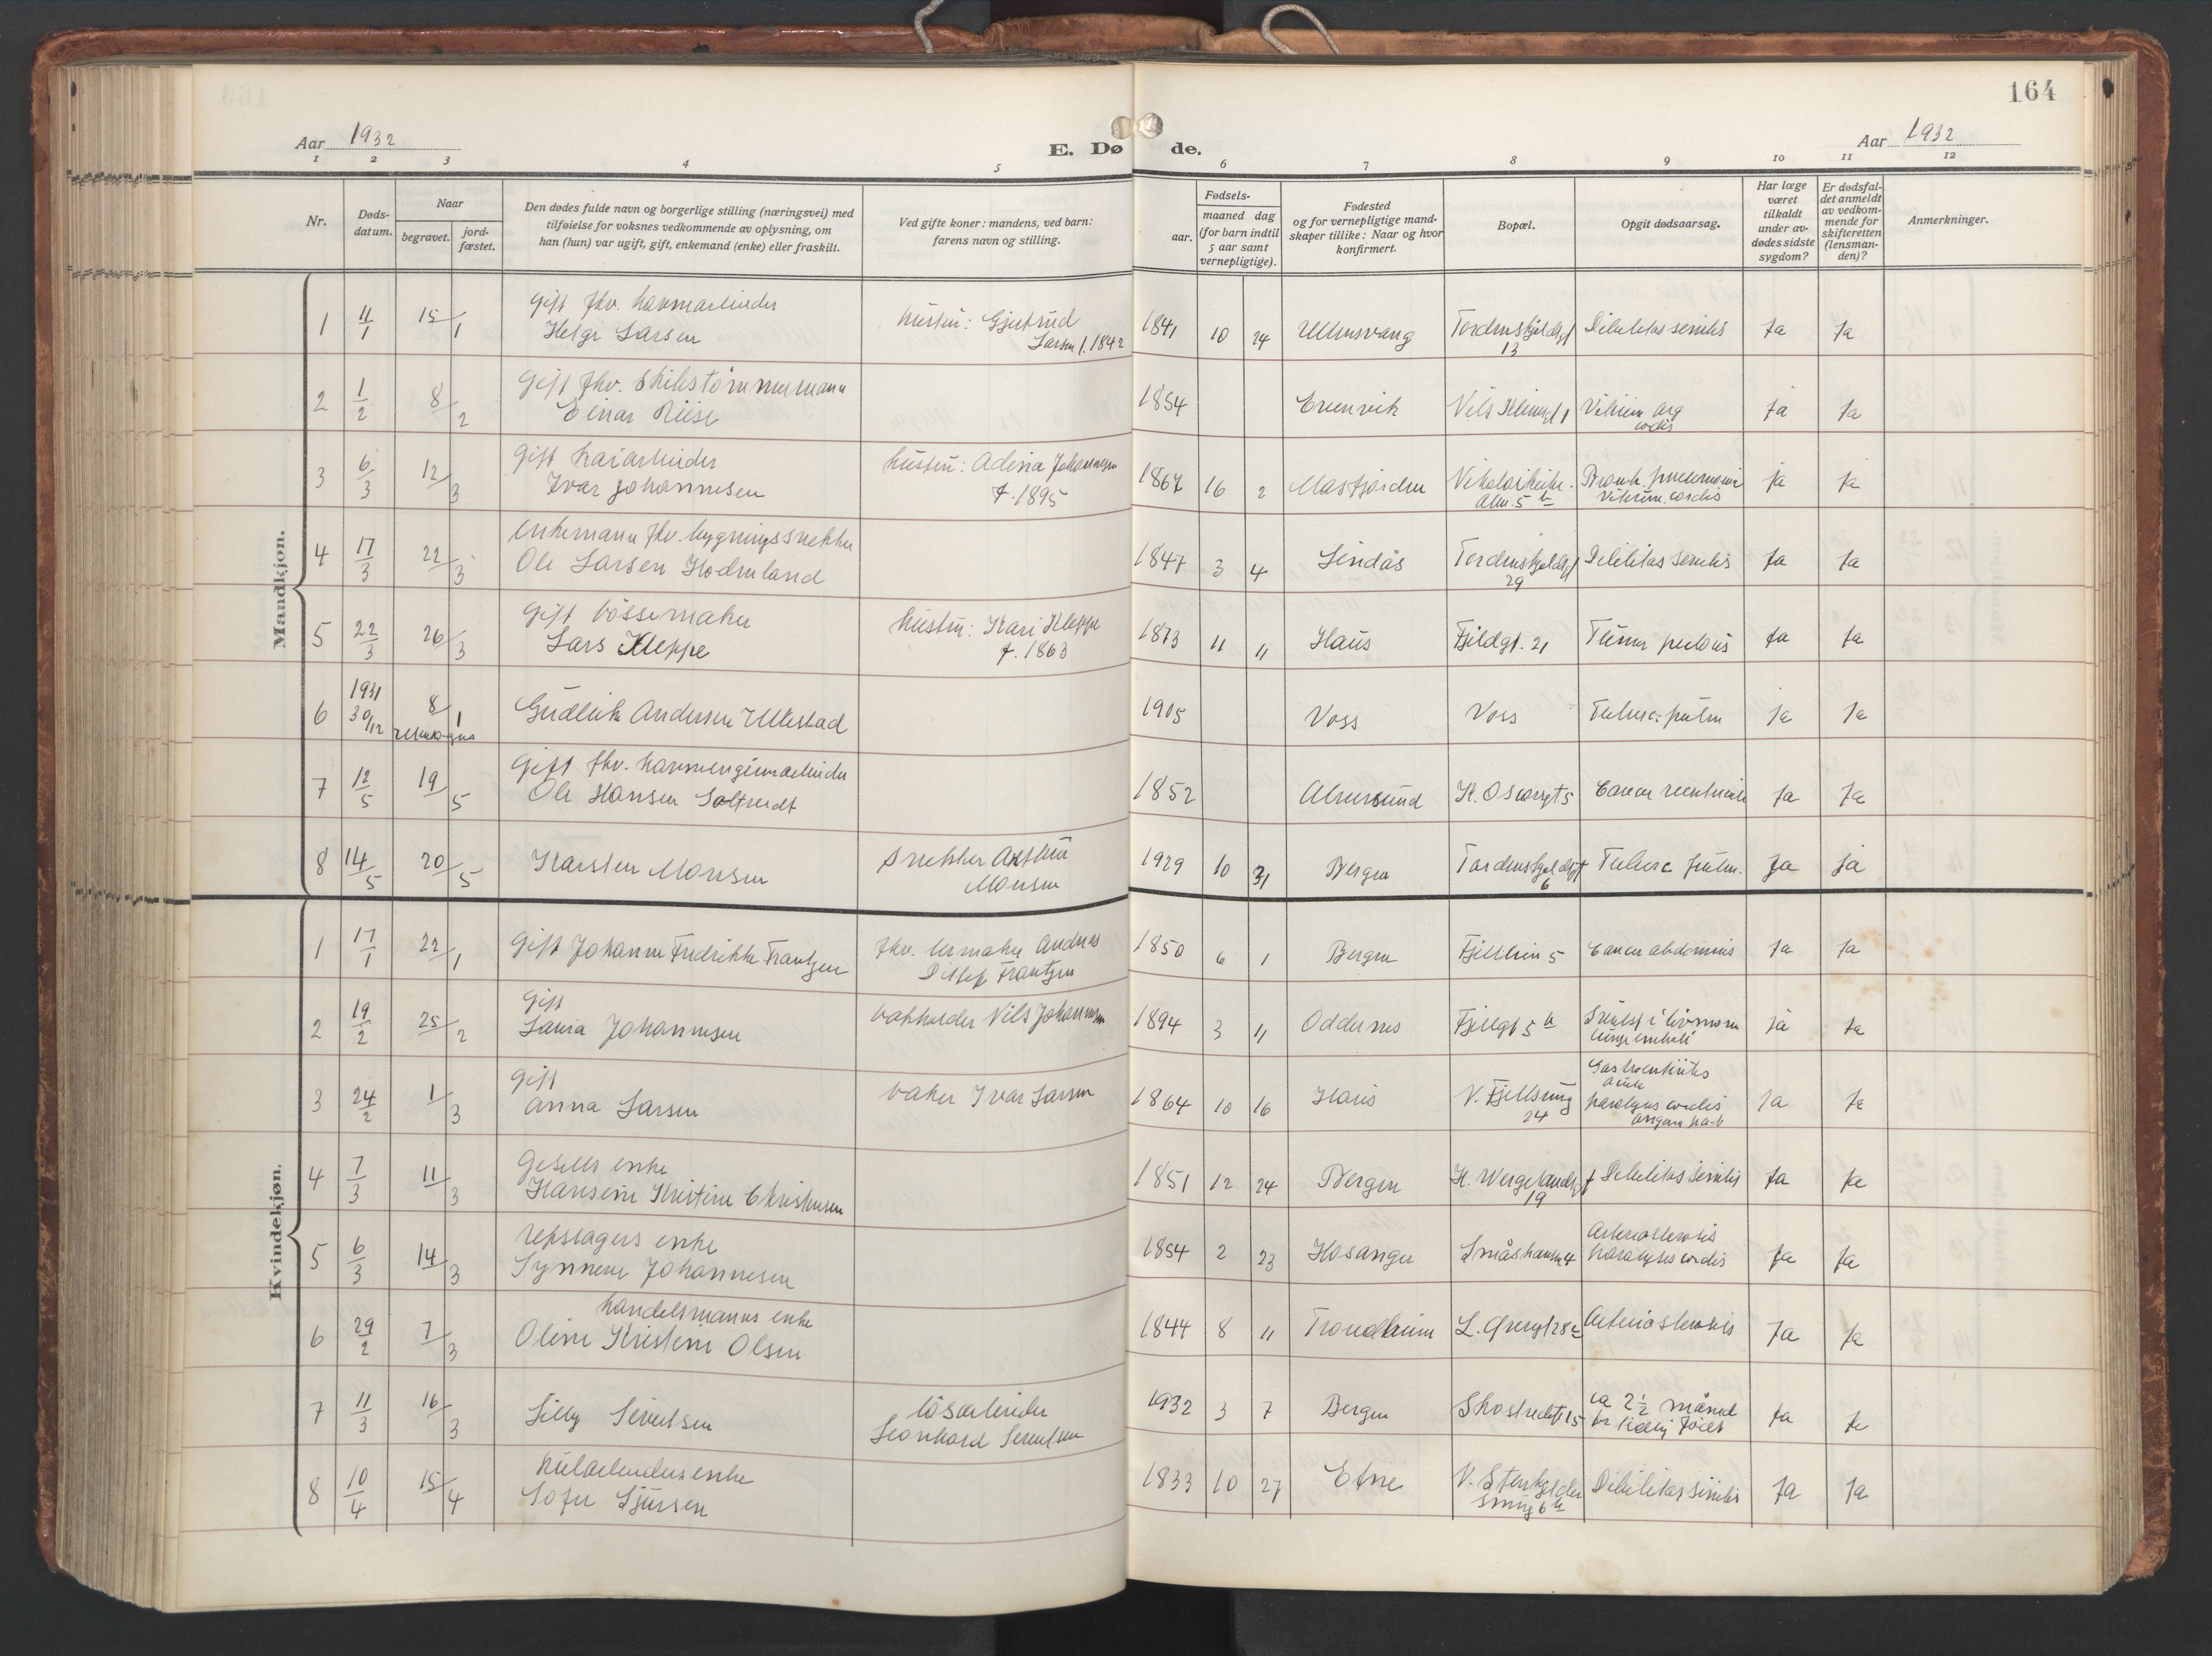 164
Aar 1932
E. Døde.
Aar 1932
1 2 3 4 5 6 7 8 9 10 11 12
Nr.
Døds-
datum.
Naar
begravet.
jord-
fæstet.
Den dødes fulde navn og borgerlige stilling (næringsvei) med
tilføielse for voksnes vedkommende av oplysning, om
han (hun) var ugift, gift, enkemand (enke) eller fraskilt.
Ved gifte koner: mandens, ved barn:
farens navn og stilling.
Fødsels-
aar.
maaned dag
(for barn indtil
5 aar samt
vernepligtige).
Fødested
og for vernepligtige mand-
skaper tillike: Naar og hvor
konfirmert.
Bopæl.
Opgit dødsaarsag.
Har læge
været
tilkaldt
under av-
dødes sidste
sygdom?
Er dødsfal-
det anmeldt
av vedkom-
mende for
skifteretten
(lensman-
den)?
Anmerkninger.
Mandkjøn.
1 11/1 15/1 Gift fhv. havnearbeider
Helge Larsen
hustru: Gjertrud
Larsen f. 1842
1841 10 24 Ullensvang Tordenskjoldsgt
13
Debilitas senilis Ja Ja
2 1/2 8/2 Gift fhv. Skibstømmermann
Einar Riise
1854 Evenvik Nels Klimsgt 1 Vitium org
cordis
Ja Ja
3 6/3 12/3 Gift kaiarbeider
Ivar Johannesen
hustru: Adina Johannesen
f. 1895
1867 16 2 Masfjorden
Alm. 5 b
Bronk. pneumoni
Vitium cordis
ja ja
4 17/3 22/3 Enkemann fhv. bygningssnekker
Ole Larsen Hodneland
1847 3 4 Lindås Tordenskjoldsgt
29
Debilitas senilis Ja Ja
5 22/3 26/3 Gift bøssemaker
Lars Kleppe
hustru: Kari Kleppe
f. 1863
1873 11 11 Haus Fjeldgt. 21 Tumor pectoris Ja Ja
6 1931
30/12 8/1 Gudleik Andersen Ullestad
1905 Voss Voss Tuberc. pulm Ja Ja
7 12/5 19/5 Gift fhv. havnevesensarbeider
Ole Hansen Saltvedt
1852 Alversund K. Oscarsgt 5 Cancer ventriculi Ja Ja
8 14/5 20/5 Karsten Monsen
Snekker Arthur
Monsen
1929 10 31 Bergen Tordenskjoldsgt
6
Tuberc pulm. Ja ja
Kvindekjøn.
1 17/1 22/1 Gift Johanne Fredrikke Frantzen
fhv. urmaker Andreas
Ditlef Frantzen
1850 6 1 Bergen Fjelllien 5 Cancer abdominis Ja Ja
2 19/2 25/2 Gift
Laura Johannesen
bokholder Nils Johannesen
1894 3 11 Oddernes Fjellgt 5 b Svulst i livmoren
lunge emboli
Ja Ja
3 24/2 1/3 Gift
Anna Larsen
baker Ivar Larsen
1864 10 16 Haus V. Fjellsmug
24
Gastroenteritis
acuta
paralysis cordis
angina pect
Ja Ja
4 7/3 11/3 Gesells enke
Hansine Kristine Christensen
1851 12 24 Bergen H. Wergelandsgt
19
Debilitas senilis Ja Ja
5 6/3 14/3 repslagers enke
Synneve Johannesen
1854 2 23 Hosanger Småskansen 4 Arteriosklerosis
paralysis cordis
Ja Ja
6 29/2 7/3 handelsmanns enke
Oline Kristine Olsen
1844 8 11 Trondheim Arteriosklerosis Ja Ja
7 11/3 16/3 Lilly Sivertsen
løsarbeider
Leonhard Sivertsen
1932 3 7 Bergen Skostredet 15 ca 2½ måned
for tidlig født
Ja Ja
8 10/4 15/4 Kularbeiders enke
Sofie Sjursen
1833 10 27 Etne V. Stenkjeller
smug 6 b
Debilitas senilis Ja Ja